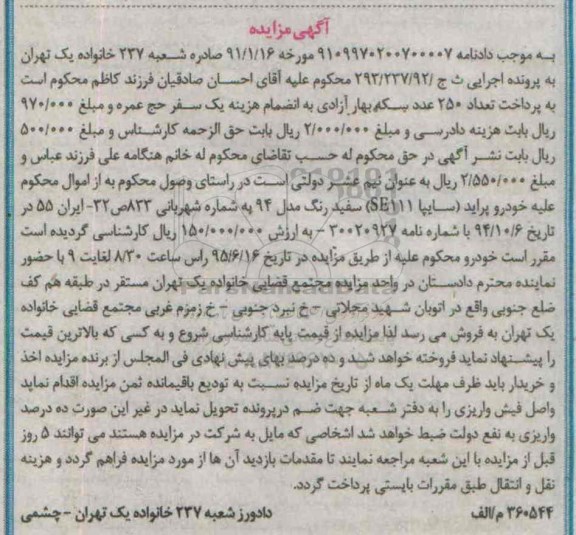 آگهی مزایده
به موجب دادنامه ۹۱۰۹۹۷۰۲۰۰۷۰۰۰۰۷ مورخه ۹۱/۱/۱۶ صادره شعبه ۲۳۷ خانواده یک تهران
به پرونده اجرایی ث ج /۲۹۳/۲۳۷/۹۲ محکوم علیه آقای احسان صادقیان فرزند کاظم محکوم است
به پرداخت تعداد ۲۵۰ عدد سکه بهار آزادی به انضمام هزینه یک سفر حج عمره و مبلغ ۹۷۰/۰۰۰
ریال بابت هزینه دادرسی و مبلغ ۲/۰۰۰/۰۰۰ ریال بابت حق الزحمه کارشناس و مبلغ ۵۰۰/۰۰۰
ریال بابت نشر آگهی در حق محکوم له حسب تقاضای محکوم له خانم هنگامه علی فرزند عباس و
مبلغ ۲/۵۵۰/۰۰۰ ریال به عنوان نیم عشر دولتی است در راستای وصول محکوم به از اموال محکوم
علیه خودرو پراید (سایپا SE۱۱۱) سفید رنگ مدل ۹۴ به شماره شهربانی ۸۳۳ص۳۲- ایران ۵۵ در
تاریخ ۹۴/۱۰/۶ با شماره نامه ۳۰۰۲۰۹۲۷ - به ارزش ۱۵۰/۰۰۰/۰۰۰ ریال کارشناسی گردیده است
مقرر است خودرو محکوم علیه از طریق مزایده در تاریخ ۹۵/۶/۱۶ راس ساعت ۸/۳۰ لغایت ۹ با حضور
نماینده محترم دادستان در واحد مزایده مجتمع قضایی خانواده یک تهران مستقر در طبقه هم کف
ضلع جنوبی واقع در اتوبان شهید محلاتی - خ نبرد جنوبی - خ زمزم غربی مجتمع قضایی خانواده
یک تهران به فروش می رسد لذا مزایده از قیمت پایه کارشناسی شروع و به کسی که بالاترین قیمت
را پیشنهاد نماید فروخته خواهد شد و ده درصد بهای پیش نهادی فی المجلس از برنده مزایده اخذ
و خریدار باید ظرف مهلت یک ماه از تاریخ مزایده نسبت به تودیع باقیمانده ثمن مزایده اقدام نماید
واصل فیش واریزی را به دفتر شعبه جهت ضم درپرونده تحویل نماید در غیر این صورت ده درصد
واریزی به نفع دولت ضبط خواهد شد اشخاصی که مایل به شرکت در مزایده هستند می توانند ۵ روز
قبل از مزایده با این شعبه مراجعه نمایند تا مقدمات بازدید آن ها از مورد مزایده فراهم گردد و هزینه
نقل و انتقال طبق مقررات بایستی پرداخت گردد.
۳۶۰۵۴۴ م/الف دادورز شعبه ۲۳۷ خانواده یک تهران - چشمی